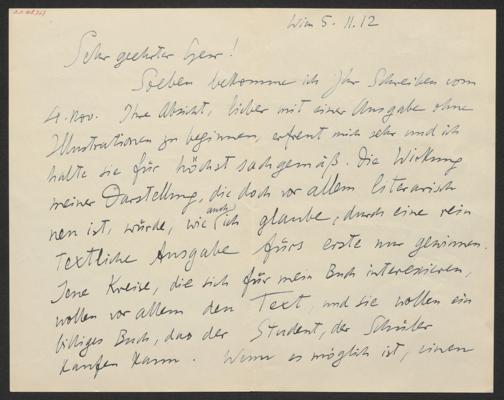 Wien 5. 11. 12
Sehr geehrter Herr!
Soeben bekomme ich Ihr Schreiben vom
4. Nov. Ihre Absicht, lieber mit einer Ausgabe ohne
Illustrationen zu beginnen, erfreut mich sehr und ich
halte sie für höchst sachgemäß. Die Wirkung
meiner Darstellung, die doch vor allem literarisch
neu ist, würde, wie auch ich glaube, durch eine rein
textliche Ausgabe fürs erste nur gewinnen.
Jene Kreise, die sich für mein Buch interessieren,
wollen vor allem den Text, und sie wollen ein
billiges Buch, das der Student, der Schüler
kaufen kann. Wenn es möglich ist, einen